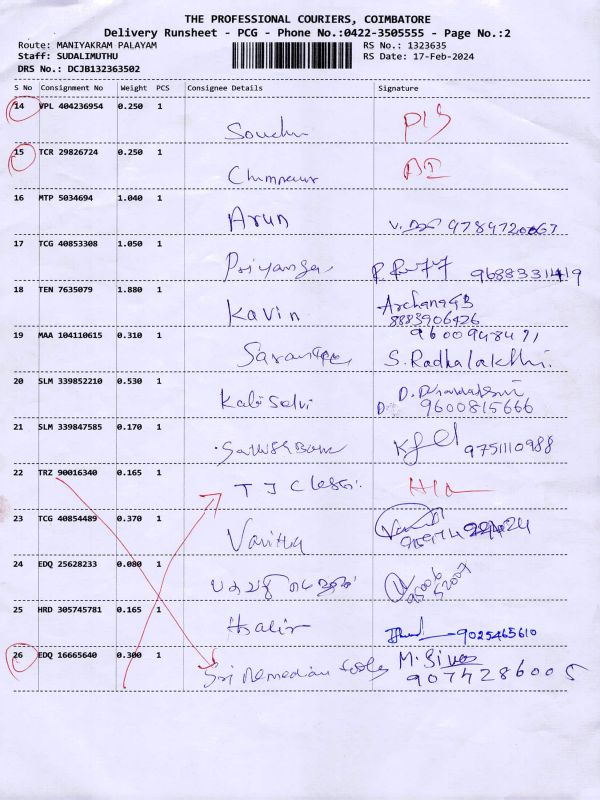 THE PROFESSIONAL COURIERS, COIMBATORE
Delivery Runsheet - PCG - Phone No.:0422-3505555 - Page No.:2
Route: MANIYAKRAM PALAYAM RS No.: 1323635
Staff: SUDALIMUTHU RS Date: 17-Feb-2024
DRS No.: DCJB132363502
S No Consignment No Weight PCS Consignee Details Signature
14 VPL 404236954 0.250 1
15 TCR 29826724 0.250 1
16 MTP 5034694 1.040 1 Arun
17 TCG 40853308 1.050 1 Priyanga 9688331419
18 TEN 7635079 1.880 1 Kavin Archana GB
8883906426
19 MAA 104110615 0.310 1 9600948491
S. Radhalakthi.
20 SLM 339852210 0.530 1 Kalai Selvi
9600815666
21 SLM 339847585 0.170 1 9751110988
22 TRZ 90016340 0.165 1 T J
23 TCG 40854489 0.370 1 Vanitha
24 EDQ 25628233 0.080 1 95006
52007
25 HRD 305745781 0.165 1 9025465610
26 EDQ 16665640 0.300 1 Sri Remedian M. Siva
9074286005